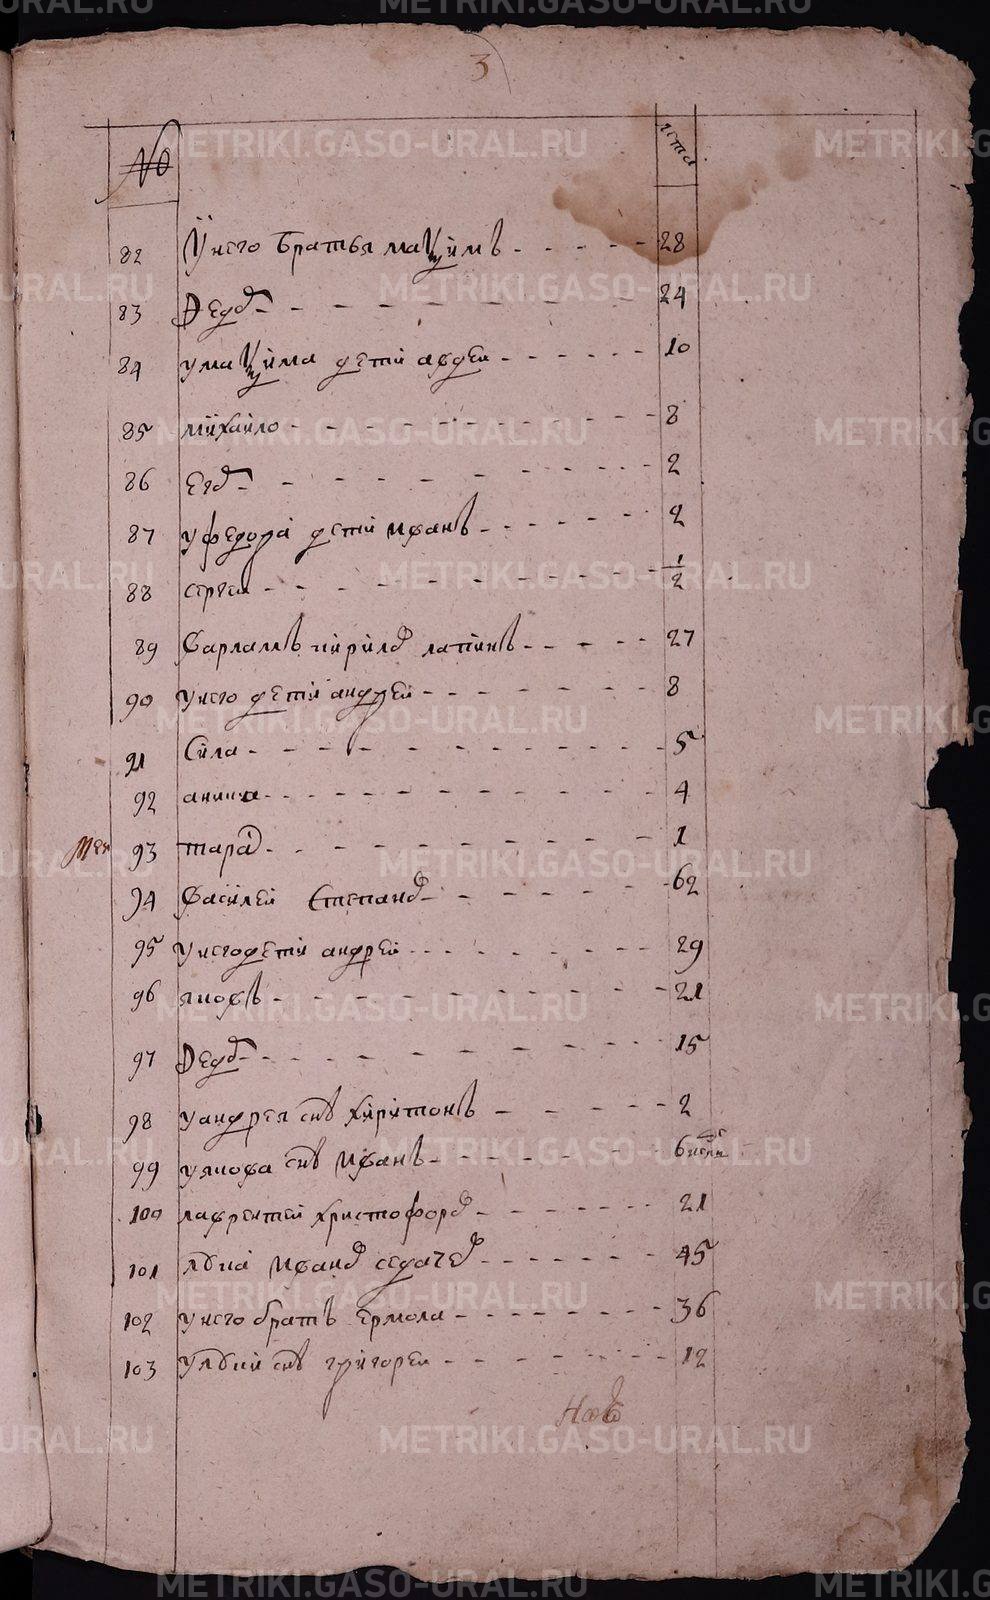 3
№ лета
82 У него братья маѯимъ 28
83 Ѳедоръ 24
84 у маѯима дети авдеи 10
85 михаило 8
86 егоръ 2
87 у федора дети иванъ 2
88 сергеи 1/2
89 варламъ кириловъ лапинъ 27
90 у него дети андреи 8
91 Сила 5
92 аника 4
Мен 93 тарасъ 1
94 василеи Степановъ 62
95 у него дети андреи 29
96 яковъ 21
97 Ѳедоръ 15
98 у андрея снъ харитонъ 2
99 у якова снъ иванъ 6
100 лаврентеи христофоровъ 21
101 лука ивановъ седачевъ 45
102 у него братъ ермола 36
103 у луки снъ григореи 12
METRIKI.GASO-URAL.RU